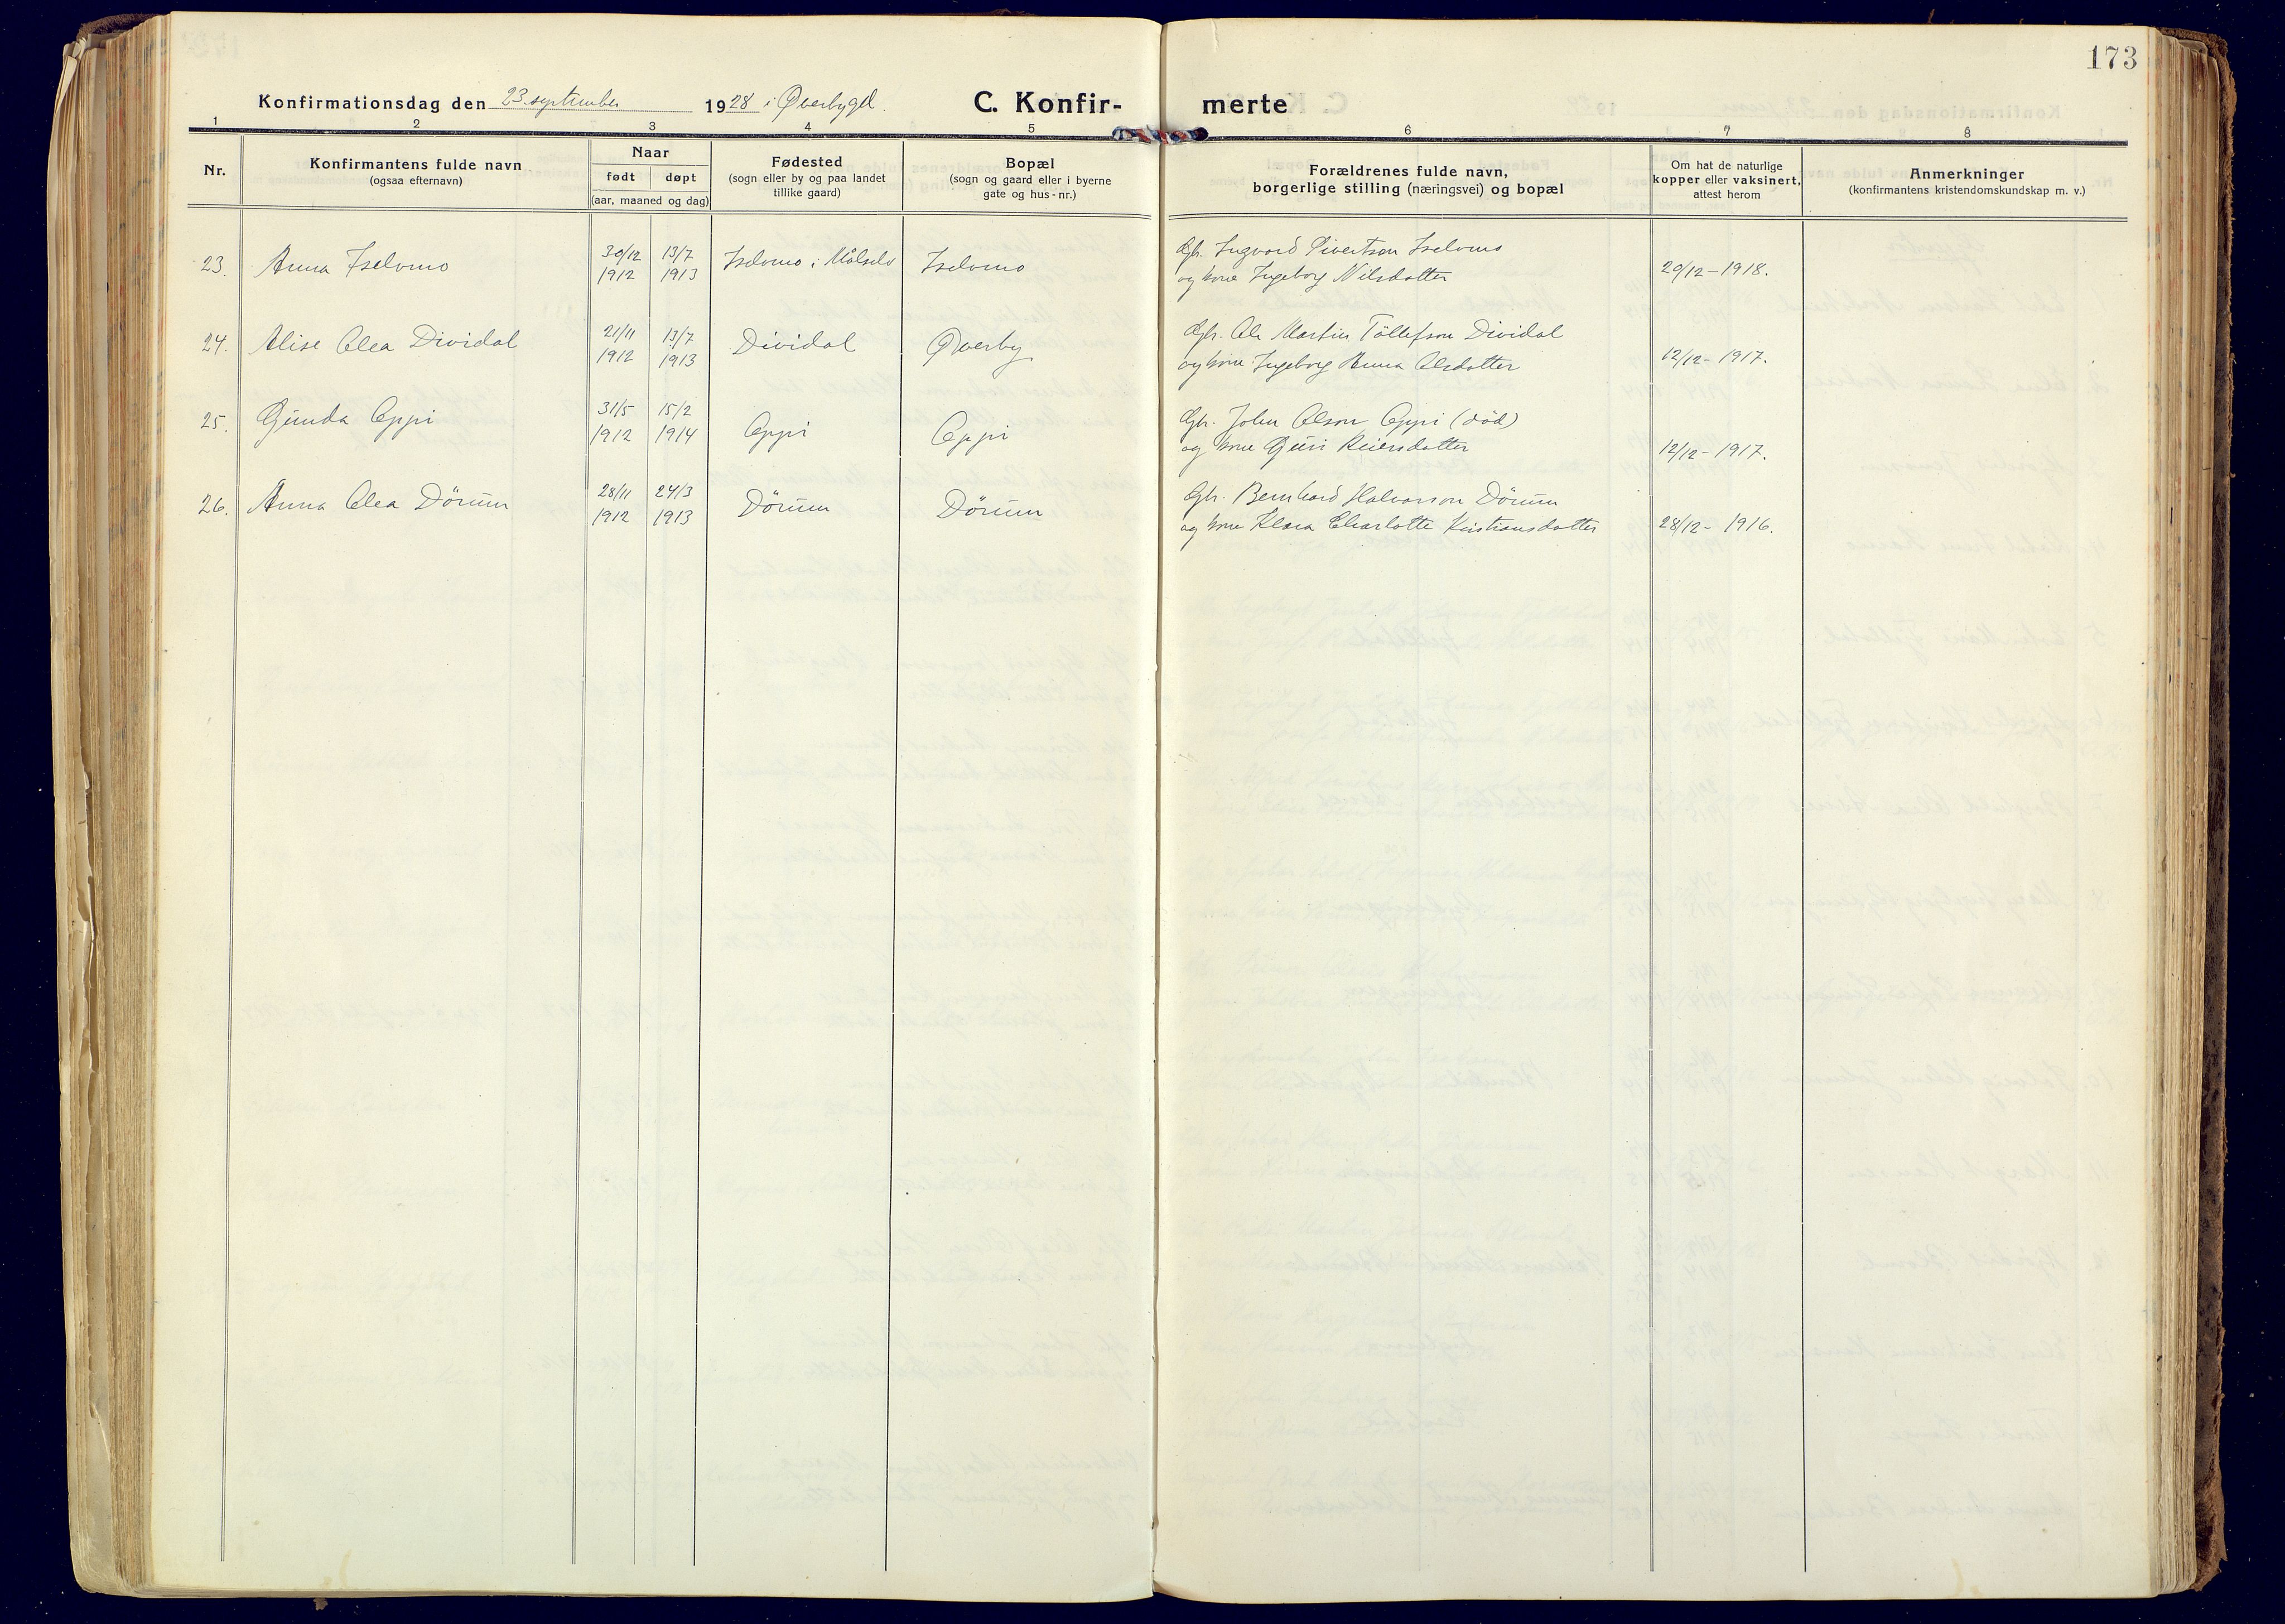 173
Konfirmationsdag den 23. september 1928 i Øverbygd. C. Konfir- merte
1 2 3 4 5 6 7 8
Nr.
Konfirmantens fulde navn
(ogsaa efternavn)
Naar
født døpt
(aar, maaned og dag)
Fødested
(sogn eller by og paa landet
tillike gaard)
Bopæl
(sogn og gaard eller i byerne
gate og hus-nr.)
Forældrenes fulde navn,
borgerlige stilling (næringsvei) og bopæl
Om hat de naturlige
kopper eller vaksinert,
attest herom
Anmerkninger
(konfirmantens kristendomskundskap m. v.)
23. Anna Iselvmo 30/12 1912 13/7 1913 Iselvmo i Målselv Iselvmo Gbr. Ingvard Sivertson Iselvmo
og kone Ingeborg Nilsdotter 29/12-1918.
24. Alise Olea Dividal 21/11 1912 13/7 1913 Dividal Øverby Gbr. Ole Martin Tollefson Dividal
og kone Ingeborg Anna Olsdotter 12/12-1917.
25. Gunda Oppi 31/5 1912 15/2 1914 Oppi Oppi Gbr. John Olson Oppi (död)
og kone Guri Reiersdotter 12/12-1917.
26. Anna Olea Dörum 28/11 1912 24/3 1913 Dörum Dörum Gbr. Bernhard Halvorson Dörum
og kone Klara Charlotte Kristiansdotter 28/12-1916.